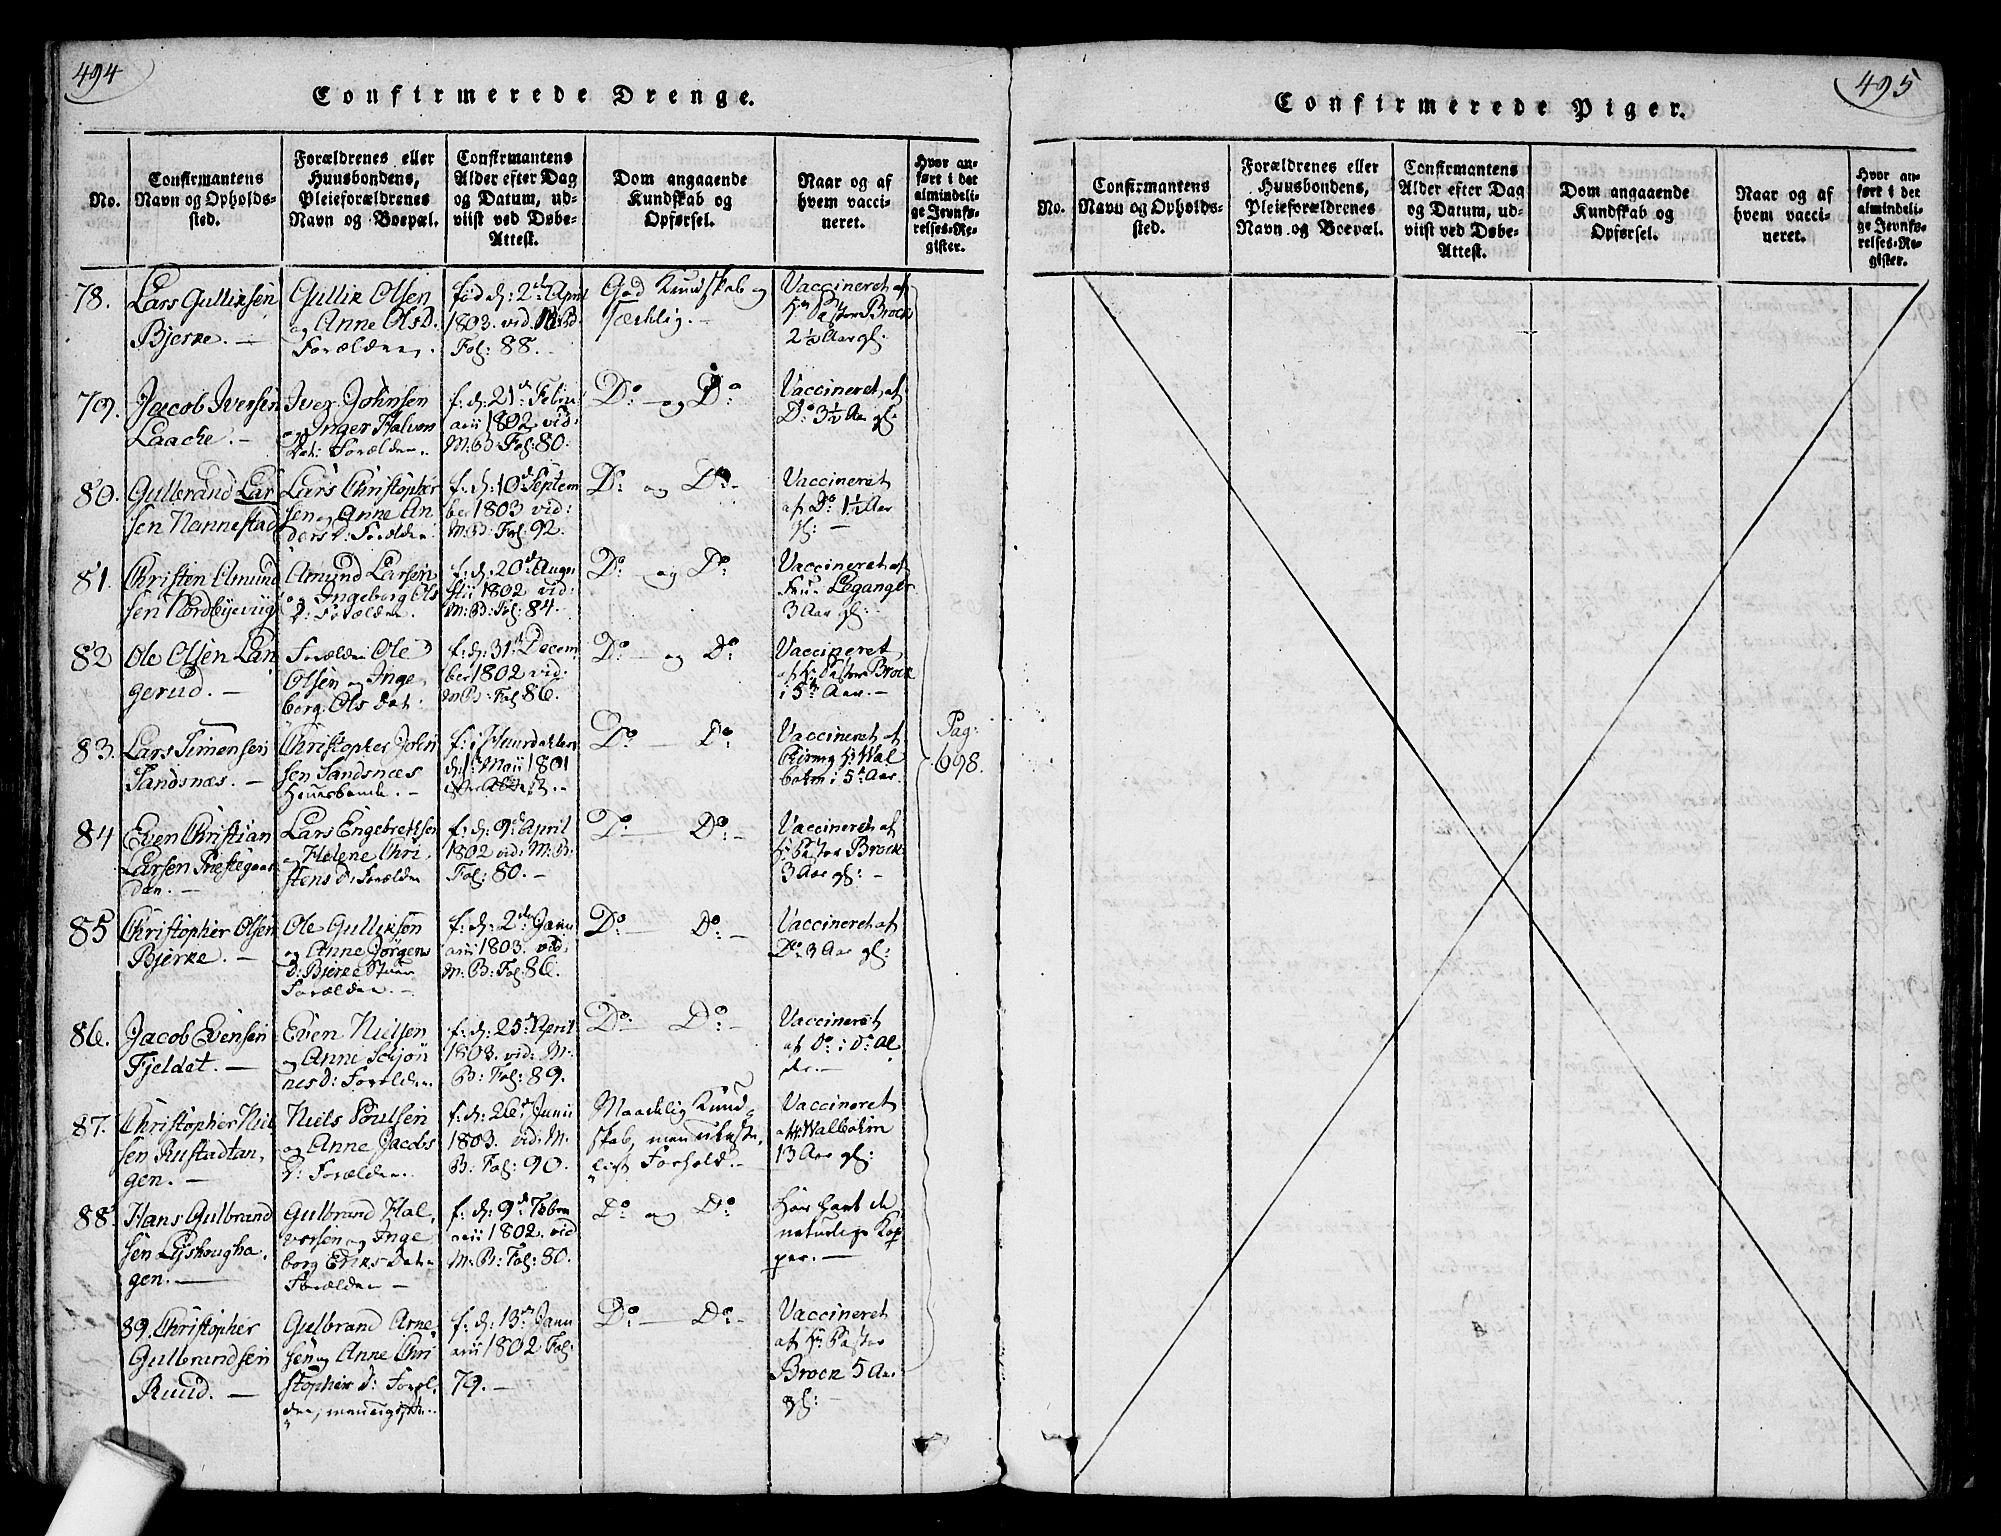 494
Confirmerede Drenge.
No.
Confirmantens
Navn og Opholds-
sted.
Forældrenes eller
Huusbondens,
Pleieforældrenes
Navn og Boepæl.
Confirmantens
Alder efter Dag
og Datum, ud-
viist ved Døbe-
Attest.
Dom angaaende
Kundskab og
Opførsel.
Naar og af
hvem vacci-
neret.
Hvor an-
ført i det
almindeli-
ge Jevnfø-
relses-Re-
gister.
78.
Lars Gulliksen
Bjerke. -
Gullik Olsen
og Anne Olsd.
Forældrene.
fød d: 2den April
1803. vid. M.B.
Fol: 88. -
God Kundskab og
sædelig. -
Vaccineret af
Hr Pastor Brock
2½ Aar gl:
79.
Jacob Iversen
Laache. -
Iver Johnsen
og Inger Halvors
Dat: Forældre.
f: d: 21de Febru
arii 1802 vid:
M: B: Fol: 80.
Do: - og Do:
Vaccineret af
Do 3½ Aar gl:
80.
Gulbrand Lar
sen Nannestad
Lars Christopher
sen og Anne An
ders D: Forældre.
f: d: 10de Septem
ber 1803 vid:
M: B: Fol: 92.
Do: og Do: -
Vaccineret
af Do 1½ Aar
gl: -
81.
Christen Amund
sen Nordbyevug
Amund Larsen
og Ingeborg Ols
D: Forældre.
f: d: 20de Augu
stii 1802 vid:
M: B: Fol: 84.
Do: - og Do:
Vaccineret af
Fru Leganger
3 Aar gl:
82
Ole Olsen Lan
gerud. -
Forældre Ole
Olsen og Inge
borg Ols Dat:
f: d: 31te Decem
ber 1802 vid:
M B: Fol: 86.
Do: - og Do:
Vaccineret
af Hr Pastor Brock
i 5te Aar. -
83.
Lars Simensen
Sandsnæs. -
Christopher John
sen Sandsnæs
Huusbonde. -
f: i Hurdahlen
d: 1te Maii 1801
Do: - Do:
Vaccineret af
Hr Wal
bohm i 5te Aar.
Pag:
698.
84
Even Christian
Larsen Præstegaar
den. -
Lars Engebretsen
og Helene Chri
stens D: Forældre
f: d: 9de April
1802 vid: M: B:
Fol: 80. -
Do: - Do: -
Vaccineret af
Hr Pastor Brock
3 Aar gl: -
85
Christopher Olsen
Bjerke. -
Ole Gulliksen
og Anne Jörgens
D: Bjerke
Forældre. -
f: d: 2den Janu
arii 1803. vid:
M: B: Fol: 86.
Do: - Do: -
Vaccineret af
Do 3 Aar gl:
86.
Jacob Evensen
Fjeldet. -
Even Nielsen
og Anne Schjön
nes D: Forældre.
f: d: 25de April
1803. vid: M:
B: Fol: 89.
Do: - Do: -
Vaccineret
af Do: i Do: Al
der. -
87.
Christopher Niel
sen Rustadtan,
gen. -
Niels Poulsen
og Anne Jacobs
D: Forældre.
f: d: 26de Junii
1803. vid: M:
B: Fol: 90.
Maadelig Kund
skab, men ulaste,
ligt Forhold. -
Vaccineret
af Hr Walbohm
13 Aar gl:
88.
Hans Gulbrand
sen Lyshougha,
gen. -
Gulbrand Hal,
vorsen og Inge
borg Eriks Dat:
Forældre -
f: d: 9de Febru
arii 1802. vid
M: B: Fol: 80.
Do: og Do:
Har havt de
naturlige Kop
per. -
89.
Christopher
Gulbrandsen
Ruud. -
Gulbrand Arne
sen og Anne Chri
stophers D: Foræl,
f: d: 13de Janu
arii 1802 Fol:
79. -
Do: - Do: -
Vaccineret
af Hr Pastor
Brock 5 Aar
gl:
495
Confirmerede Piger.
No.
Confirmantens
Navn og Opholds-
sted.
Forældrenes eller
Huusbondens,
Pleieforældrenes
Navn og Boepæl.
Confirmantens
Alder efter Dag
og Datum, ud-
viist ved Døbe-
Attest.
Dom angaaende
Kundskab og
Opførsel.
Naar og af
hvem vacci-
neret.
Hvor an-
ført i det
almindeli-
ge Jevnfø-
relses-Re-
gister.